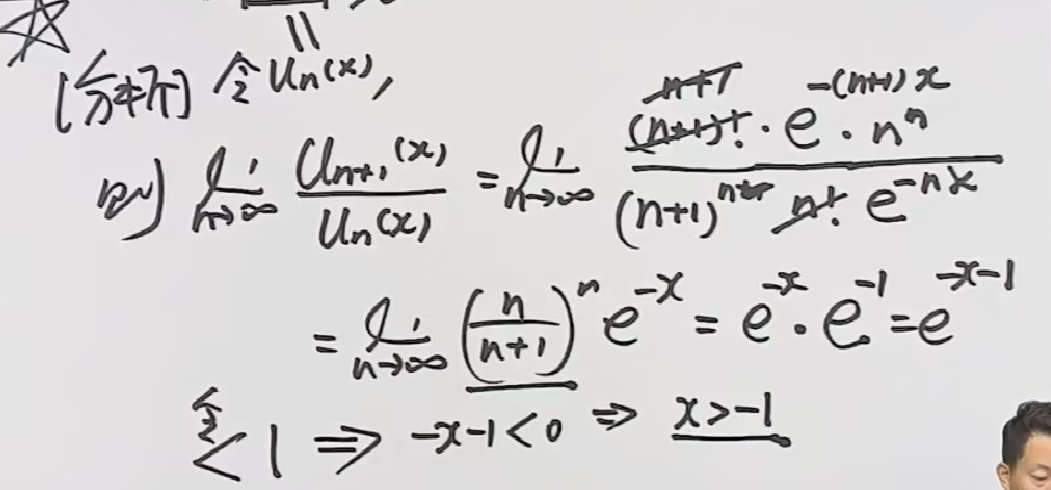 ||
[分析] 令 Uₙ(x),
则 lim n→∞ Uₙ₊₁(x) / Uₙ(x) = lim n→∞ (n+1)! · e^{-(n+1)x} · nⁿ / (n+1)^{n+1} n! e^{-nx}
n+1
= lim n→∞ (n / n+1)ⁿ e^{-x} = e^{-x} · e^{-1} = e^{-x-1}
令 < 1 ⇒ -x-1 < 0 ⇒ x > -1